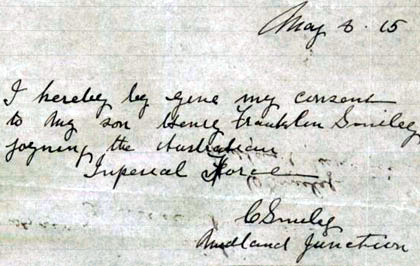 May 3. 15
I hereby by give my consent
to my son Henry Franklin Smiley
joyning the Australian
Inperial Force
C Smiley
Midland Junction